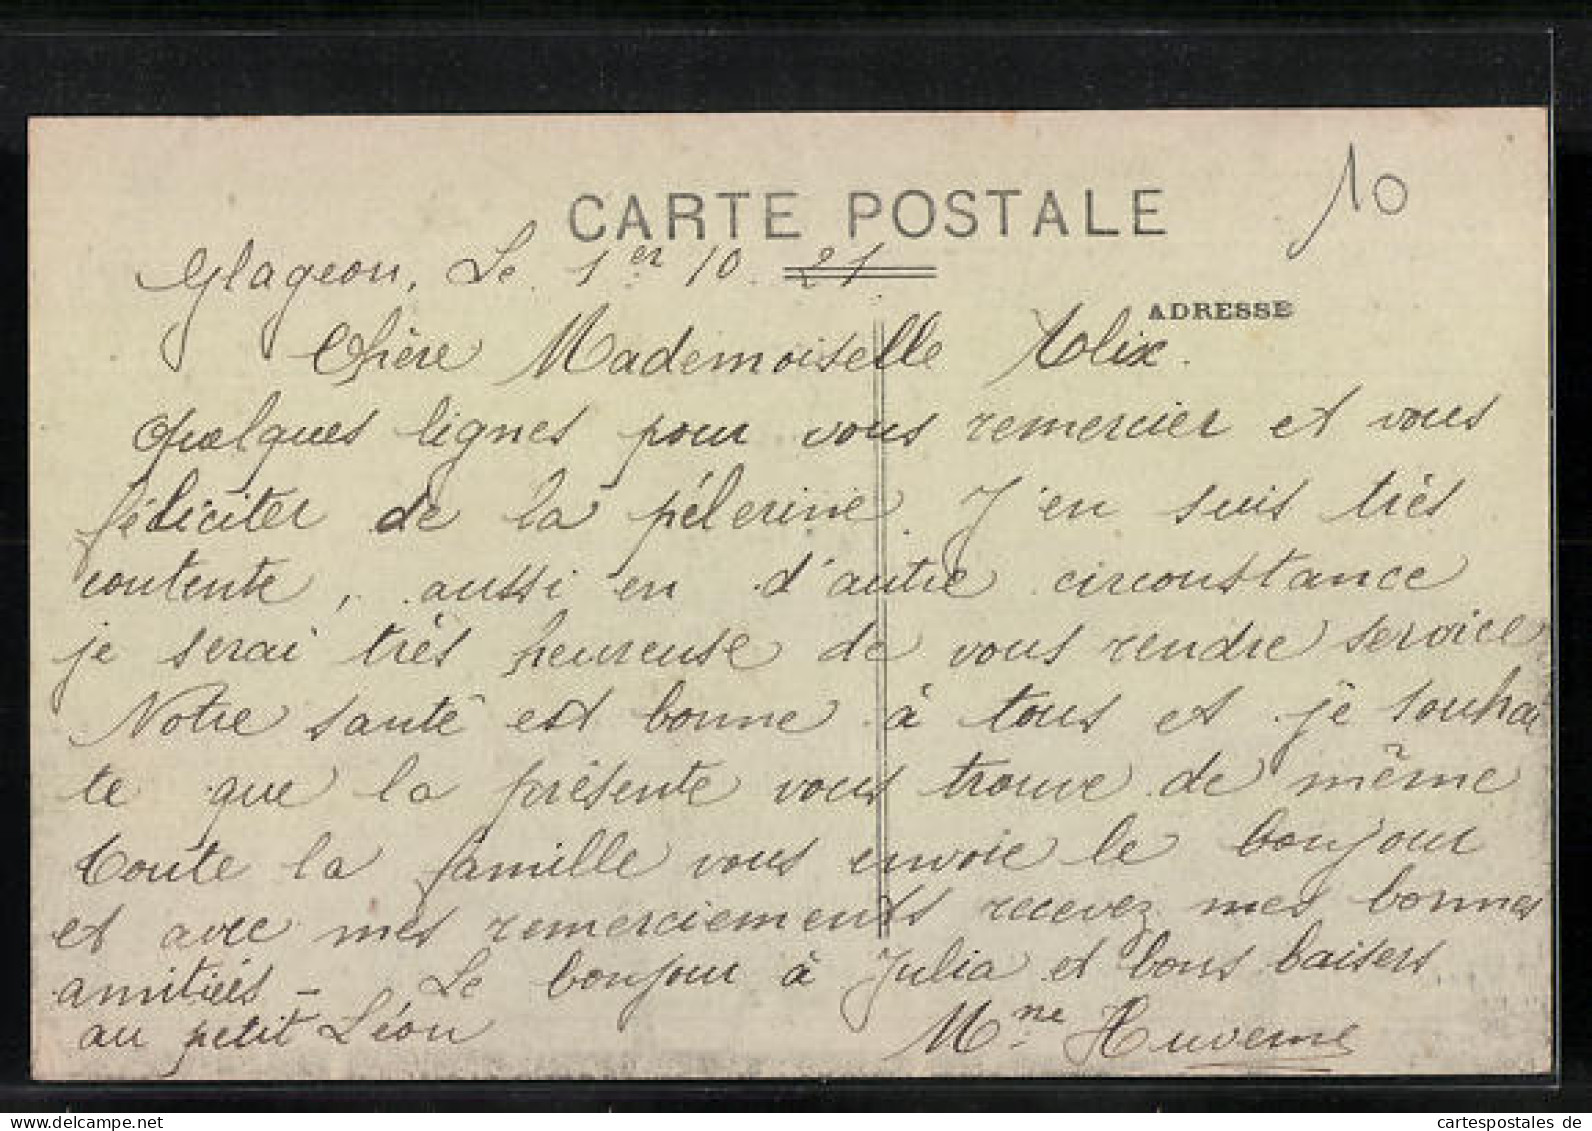 10
CARTE POSTALE
Glageon, Le 1er 10. 21.
ADRESSE
Chère Mademoiselle Alix.
Quelques lignes pour vous remercier et vous
féliciter de la pélerine. J'en suis très
contente, aussi en d'autre circonstance
je serai très heureuse de vous rendre service
Notre santé est bonne à tous et je souhai
te que la présente vous trouve de même
Toute la famille vous envoie le bonjour
et avec mes remerciements recevez mes bonnes
amitiés - Le bonjour à Julia et bons baisers
au petit Léon
Mme Huverne
cartespostales de